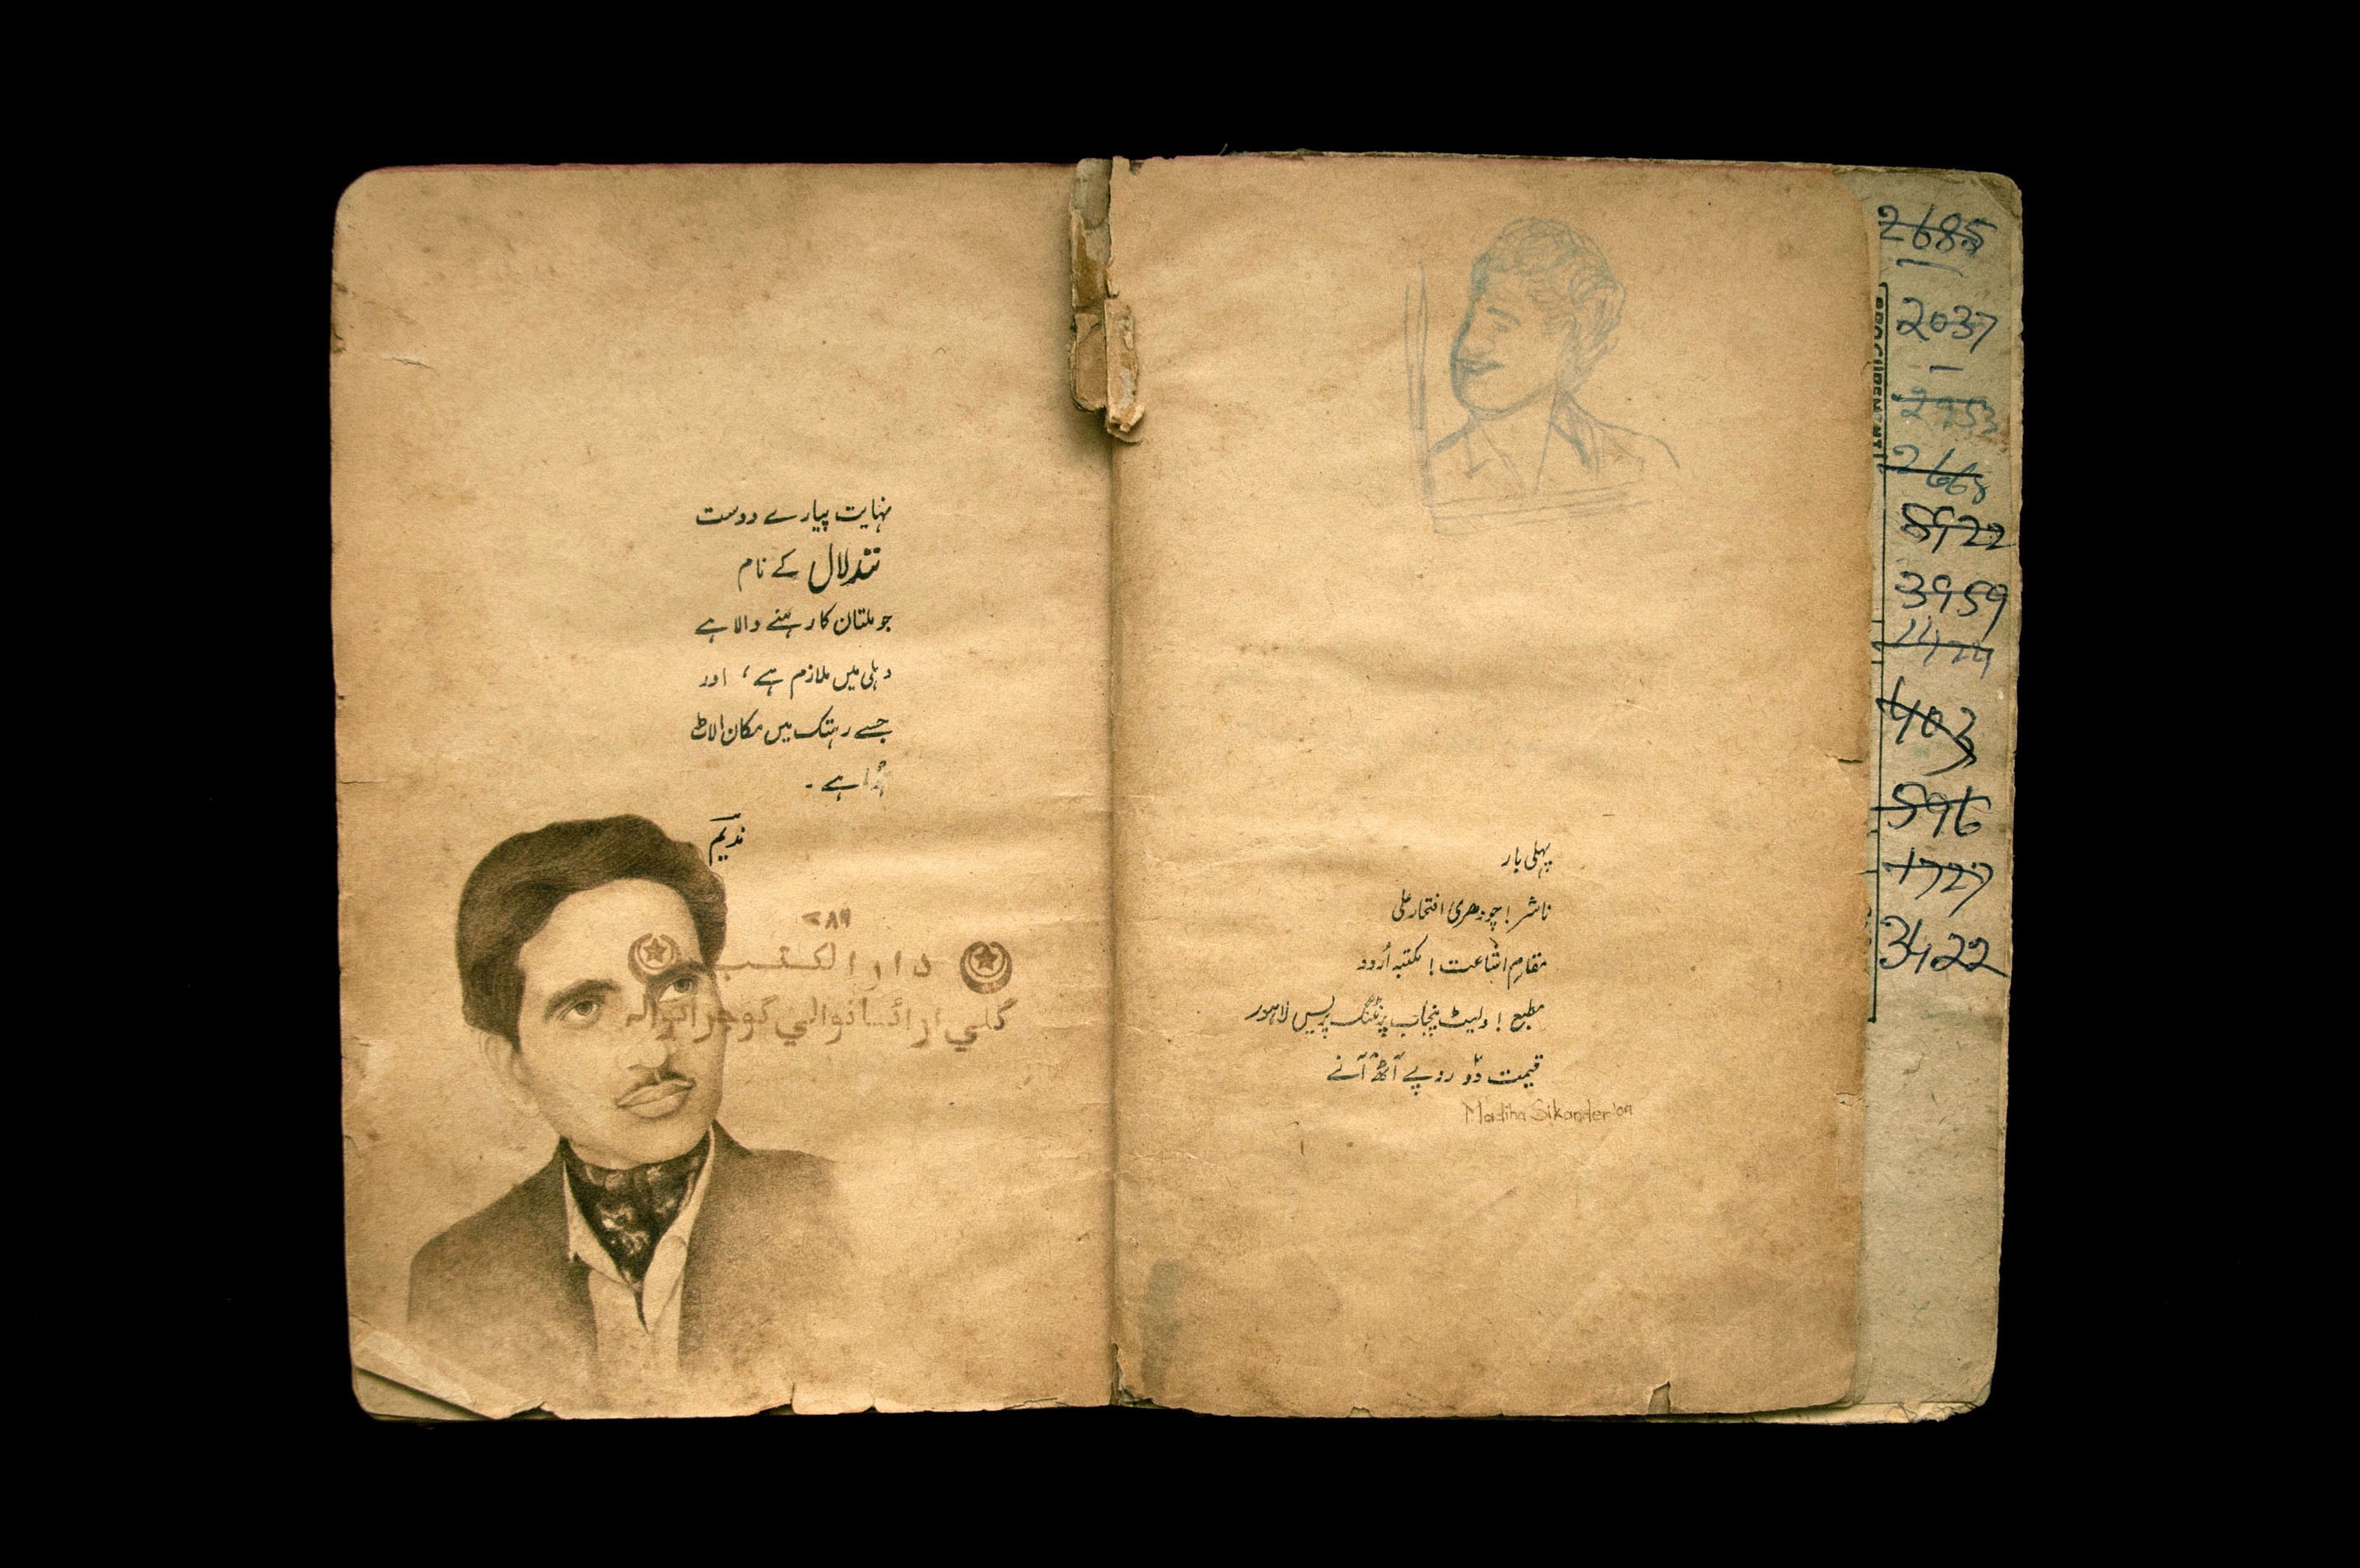 نہایت پیارے دوست
نندلال کے نام
جو ملتان کا رہنے والا ہے
دہلی میں ملازم ہے، اور
جسے رہتک میں مکان الاٹ
ہُوا ہے۔
ندیم
۷۸۶
دار الکتب
گلي ارائسانوالي گوجرانوالہ
پہلی بار
ناشر! چودھری افتخار علی
مقامِ اشاعت! مکتبہ اُردو
مطبع! ویسٹ پنجاب پرنٹنگ پریس لاہور
قیمت دو روپے آٹھ آنے
Madiha Sikander'09
2685
2037
2953
2668
5922
3959
403
596
1727
3422